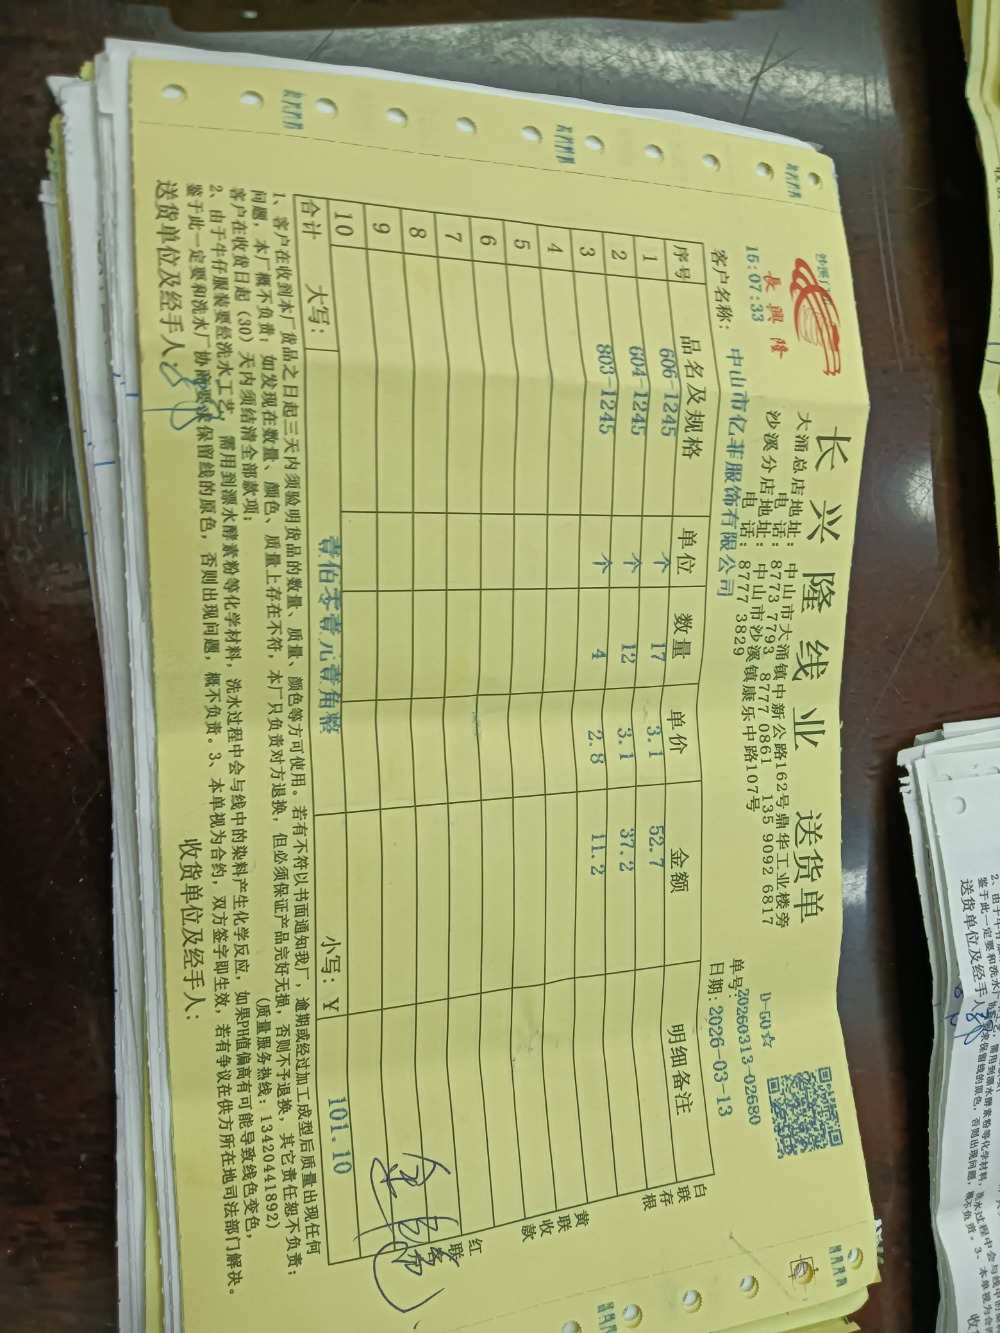 沙溪门
長興隆
15:07:33
长兴隆线业 送货单
大涌总店地址: 中山市大涌镇中新公路162号鼎华工业楼旁
电 话: 8773 7793 8777 0861 135 9092 6817
沙溪分店地址: 中山市沙溪镇康乐中路107号
电 话: 8777 3829
D-50☆
单号:20260313-02680
客户名称: 中山市亿菲服饰有限公司 日期:2026-03-13
序号 品名及规格 单位 数量 单价 金额 明细备注
1 606-1245 个 17 3.1 52.7
2 604-1245 个 12 3.1 37.2
3 803-1245 个 4 2.8 11.2
4
5
6
7
8
9
10
合计 大写: 壹佰零壹元壹角整 小写: ¥ 101.10
白联存根
黄联收款
红联
1、客户在收到本厂货品之日起三天内须验明货品的数量、质量、颜色等方可使用。若有不符以书面通知我厂，逾期或经过加工成型后质量出现任何
问题，本厂概不负责；如发现在数量、颜色、质量上存在不符，本厂只负责对方退换，但必须保证产品完好无损，否则不予退换，其它责任恕不负责；
客户在收货日起(30)天内须结清全部款项； (质量服务热线: 13420441892)
2、由于牛仔服装要经洗水工艺，需用到漂水酵素粉等化学材料，洗水过程中会与线中的染料产生化学反应，如果PH值偏高有可能导致线色变色，
鉴于此一定要和洗水厂协商要求保留线的原色，否则出现问题，概不负责。3、本单视为合约，双方签字即生效，若有争议在供方所在地司法部门解决。
送货单位及经手人: 收货单位及经手人: